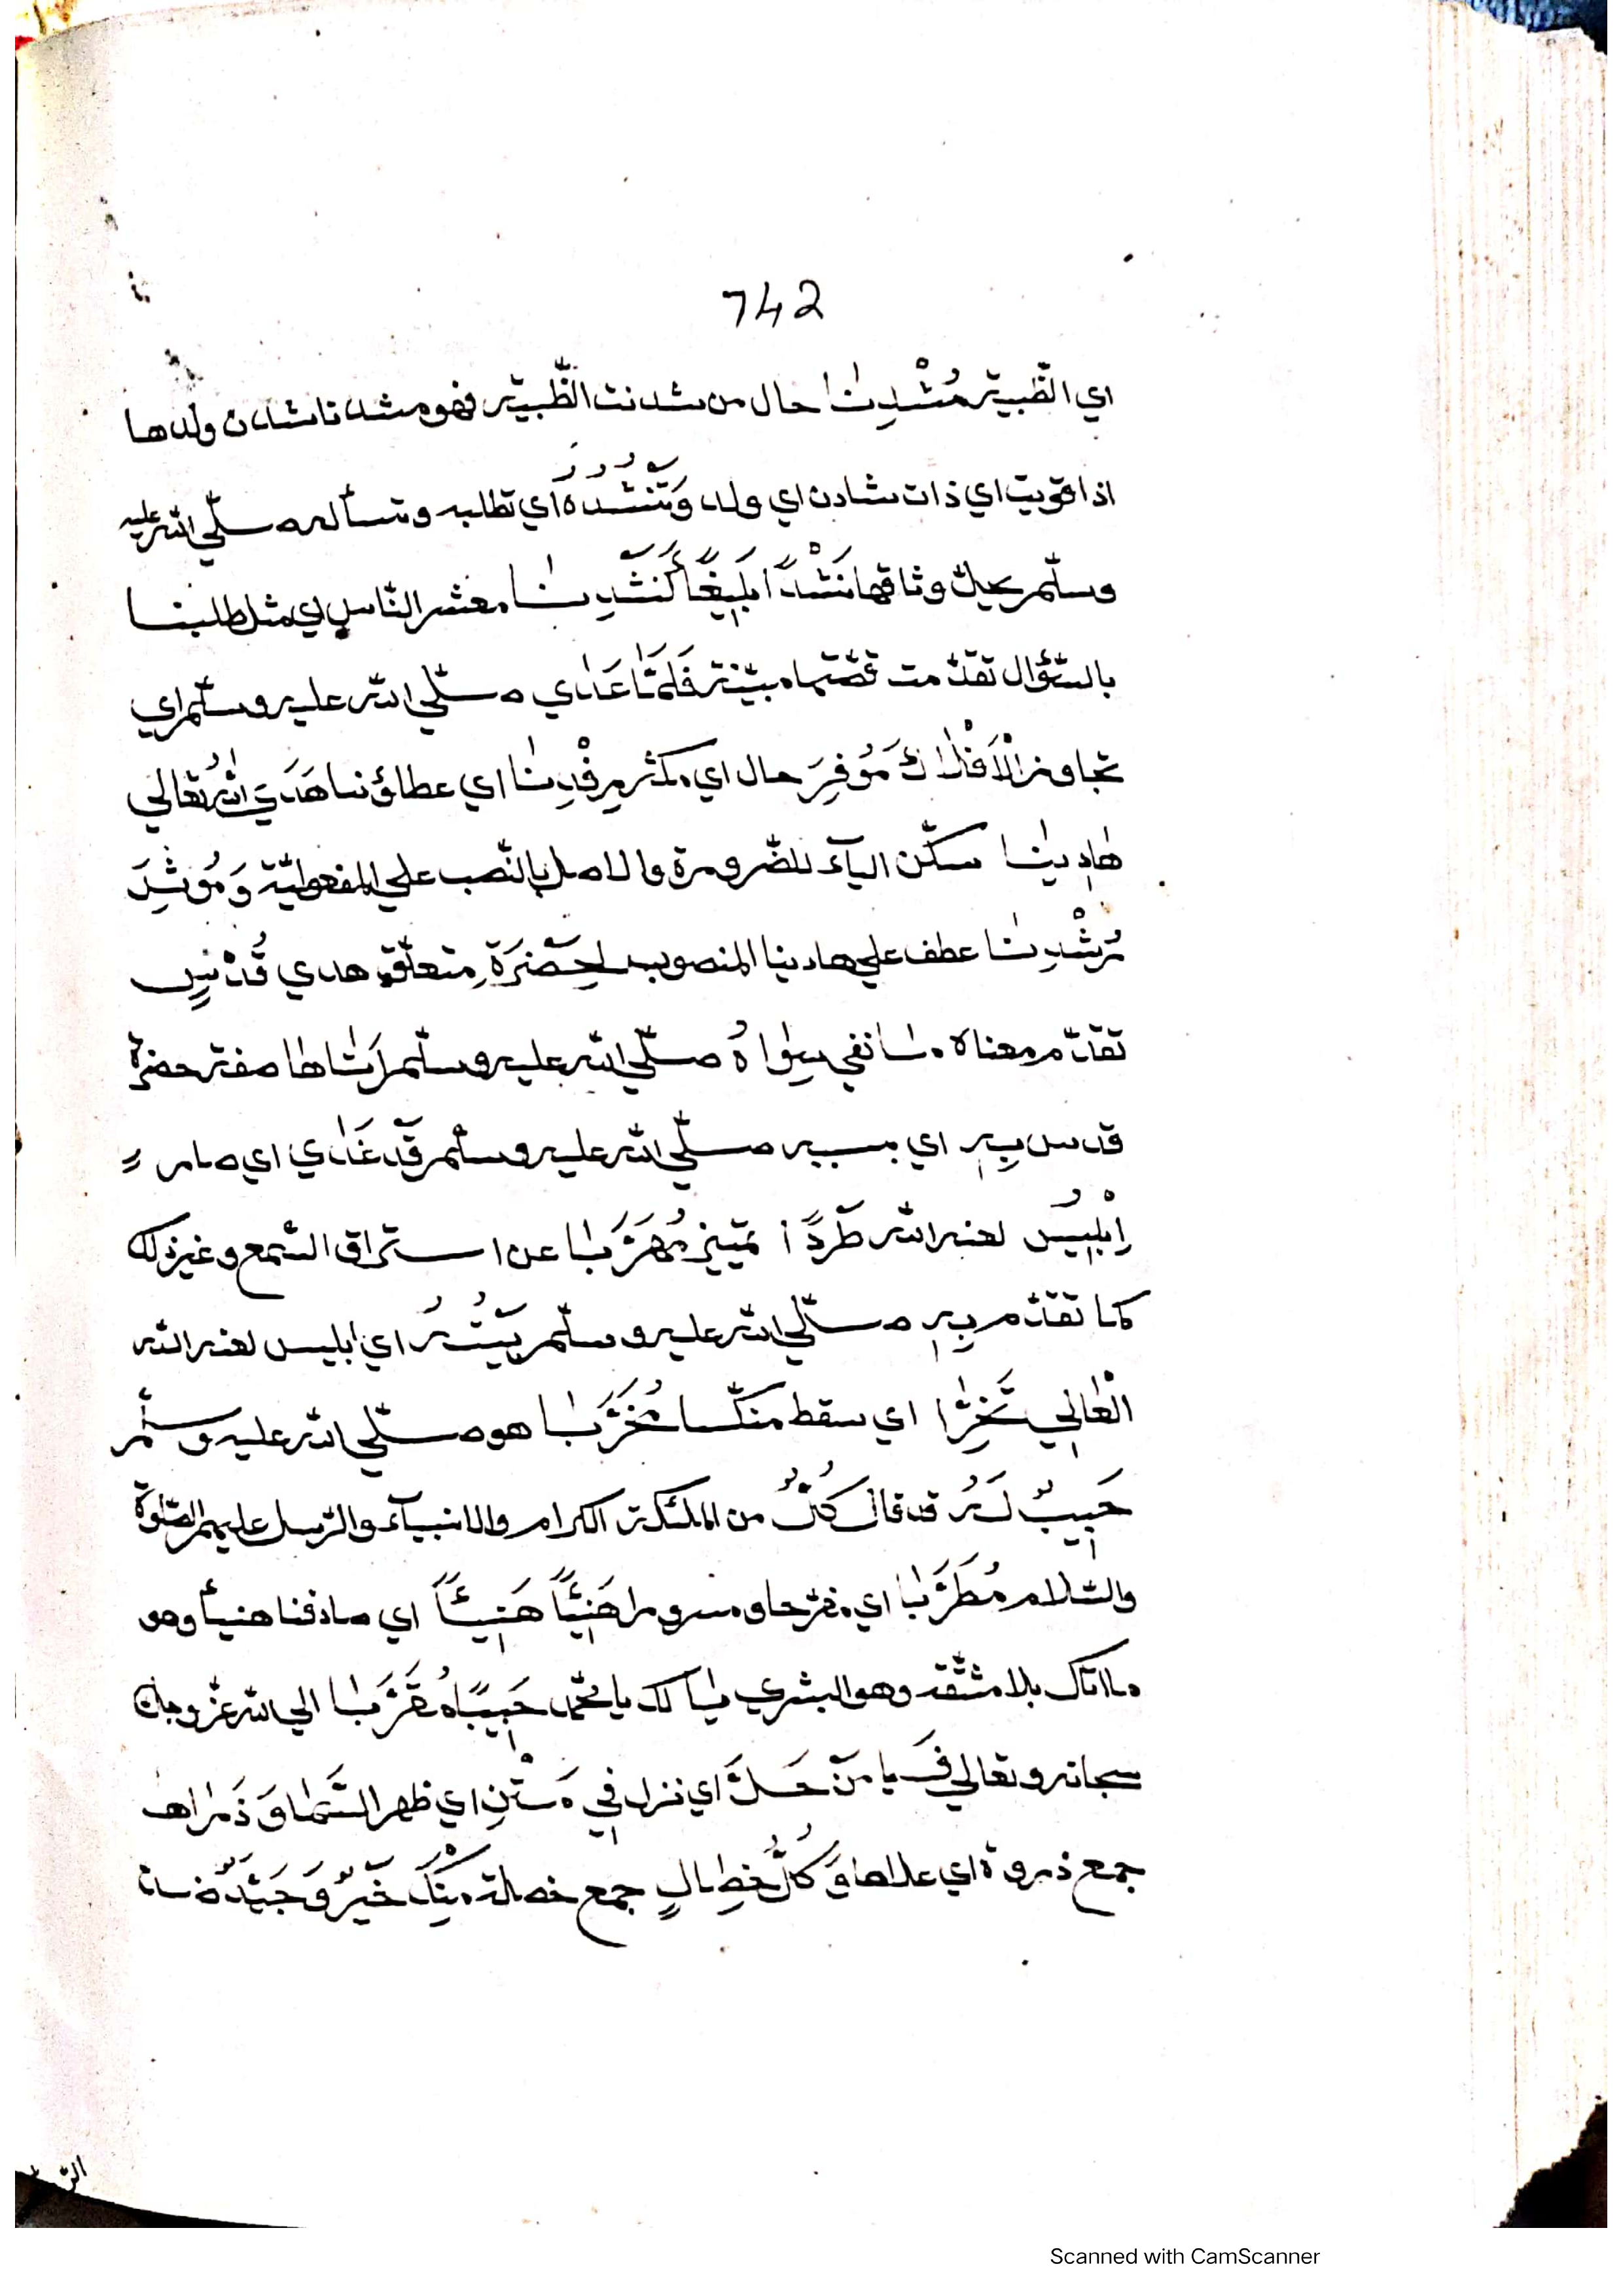 742
اي الظّبية مُشْدِنٰا حال من شدنت الظّبية فهو مشدنا شدن ولدها
اذا قويت اي ذات شادن اي ولد وَتَنْشُدُهُ اي تطلبه وتسأله صلّي اللّه عليه
وسلّم بحلّ وثاقها نَشْدًا بَلِيغًا كَنَشْدِنٰا معشر النّاس اي مثل طلبنا
بالسّؤال تقدّمت قصّتها مبيّنة فَلَمَّا عَدٰي صلّي اللّه عليه وسلّم اي
تجاوز الْاَفْلٰاكَ مُوْفِرَ حال اي مكثر رِفْدِنٰا اي عطاؤنا هَدَيَ اللّٰهُ تعالي
هٰادِينٰا سكّن الياء للضّرورة والاصل بالنّصب علي المفعوليّة وَمُرْشِدَ
رُشْدِنٰا عطف علي هادينا المنصوب لِحَضْرَةِ متعلّق هدي قُدْسٍ
تقدّم معناه مٰا نفي سِوٰاهُ صلّي اللّه عليه وسلّم اَتٰاهٰا صفة حضرة
قدس بِهِ اي بسببه صلّي اللّه عليه وسلّم قَدْ غَدٰي اي صار
اِبْلِيْسُ لعنه اللّه طَرْدًا تمييز مُهَرَّبٰا عن استراق السّمع وغير ذلك
كما تقدّم بِهِ صلّي اللّه عليه وسلّم بَيْتُهُ اي ابليس لعنه اللّه
الْعٰالِي تَخِرُّ اي سقط منكّسا مُخَرَّبٰا هو صلّي اللّه عليه وسلّم
حَبِيبٌ لَهُ قد قال كُلٌّ من الملئكة الكرام والانبياء والرّسل عليهم الصّلوة
والسّلام مُطَرَّبٰا اي مفرّحا ومسرورا هَنِيْئًا هَنِيْئًا اي صادفنا هنيأ وهو
ما اتاك بلا مشقّة وهو البشري لك يا محمّد حَبِيبًا مُقَرَّبٰا الي اللّه عزّ وجلّ
سبحانه وتعالي فَيا مَنْ حَلَّ اي نزل فِي مَتْنِ اي ظهر السَّمٰا وَ ذُرٰاهٰا
جمع ذروة اي علاها وَكُلُّ خِصٰالٍ جمع خصلة مِنْكَ خَيْرٌ وَجَيِّدٌ